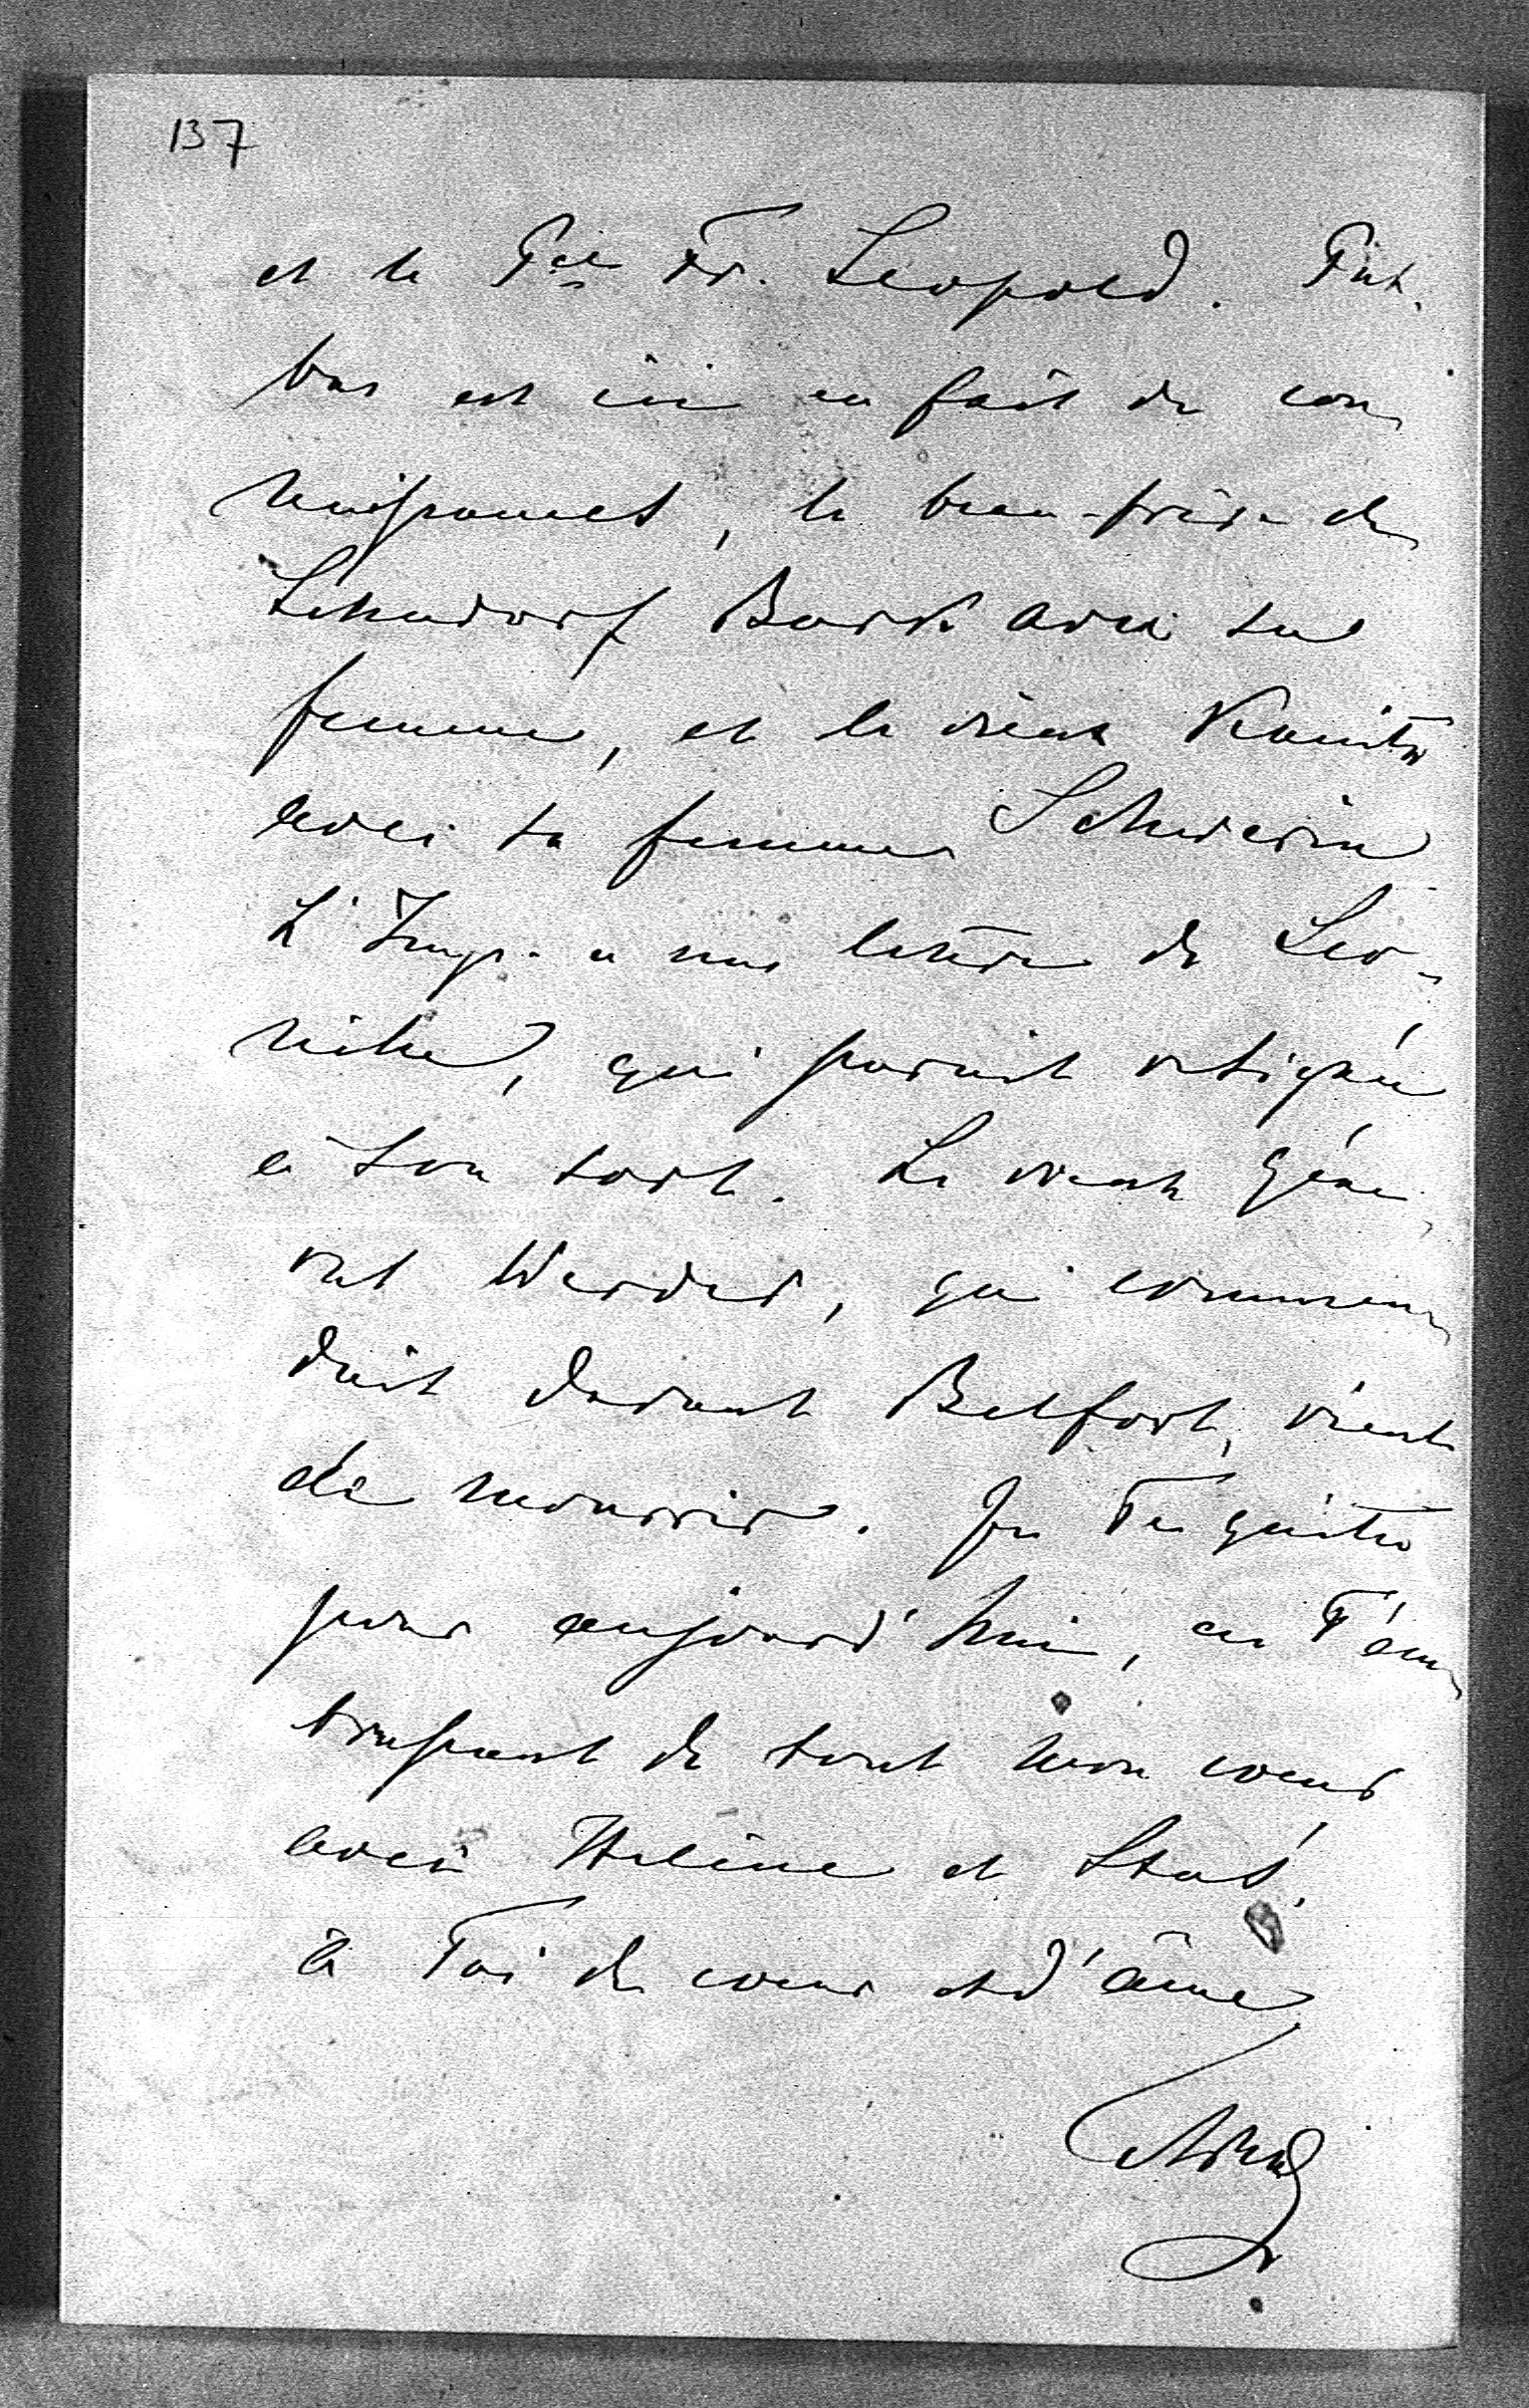 137
et le Pce Fr. Leopold. Put-
bus est ici en fait de con-
naissances, le beau-frère de
Lehndorf Bork avec sa
femme, et le vieux Kanitz
avec sa femme Schwerin
L'Imp. a une lettre de Léo-
nille, qui parait résignée
à son sort. Le vieux géné-
ral Werder, qui comman-
dait devant Belfort, vient
de mourrir. Je Te quitte
pour aujourd'hui, en T'em-
brassant de tout mon coeur
avec Hélène et Stas.
à Toi de coeur et d'âme